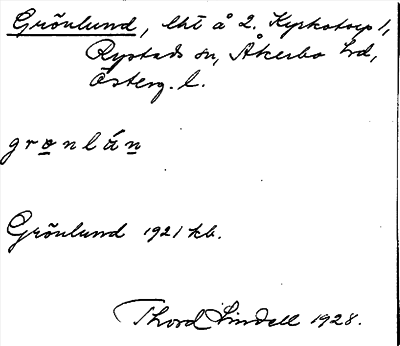 Grönlund, lht å 2. Kyrkotorp 1,
Rystads sn, Åkerbo hd,
Österg. l.
grønlán
Grönlund 1921 kb.
Thord Lindell 1928.